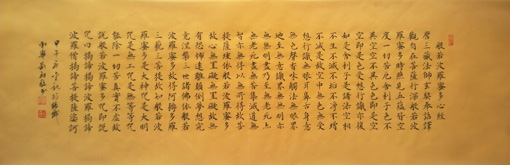 般若波羅蜜多心經
唐三藏法師玄奘奉詔譯
觀自在菩薩行深般若波
羅蜜多時照見五蘊皆空
度一切苦厄舍利子色不
異空空不異色色即是空
空即是色受想行識亦復
如是舍利子是諸法空相
不生不滅不垢不淨不增
不減是故空中無色無受
想行識無眼耳鼻舌身意
無色聲香味觸法無眼界
乃至無意識界無無明亦
無無明盡乃至無老死亦
無老死盡無苦集滅道無
智亦無得以無所得故菩
提薩埵依般若波羅蜜多
故心無罣礙無罣礙故無
有恐怖遠離顛倒夢想究
竟涅槃三世諸佛依般若
波羅蜜多故得阿耨多羅
三藐三菩提故知般若波
羅蜜多是大神咒是大明
咒是無上咒是無等等咒
能除一切苦真實不虛故
說般若波羅蜜多咒即說
咒曰揭諦揭諦波羅揭諦
波羅僧揭諦菩提薩婆訶
甲午